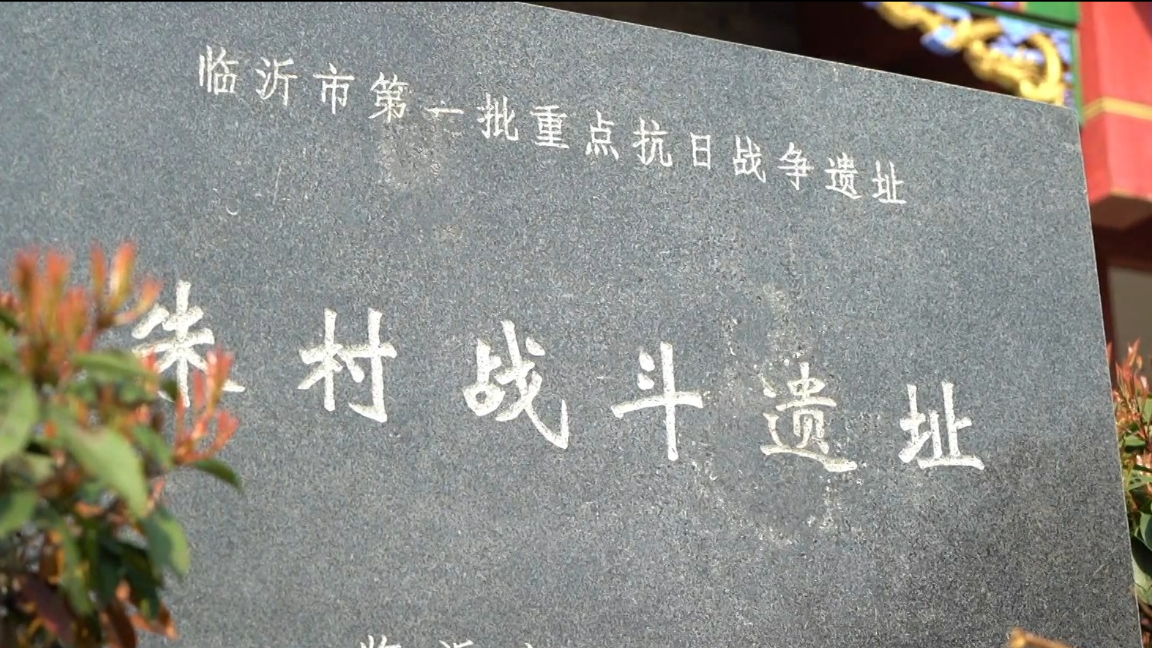 临沂市第一批重点抗日战争遗址
朱村战斗遗址
临沂